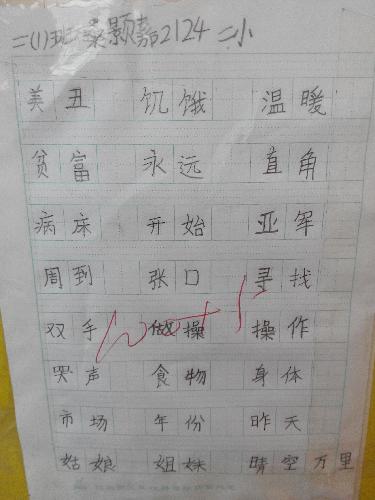 二(1)班 桑颢嘉 2124 二小
美丑 饥饿 温暖
贫富 永远 直角
病床 开始 亚军
周到 张口 寻找
双手 做操 操作
哭声 食物 身体
市场 年份 昨天
姑娘 姐妹 晴空万里